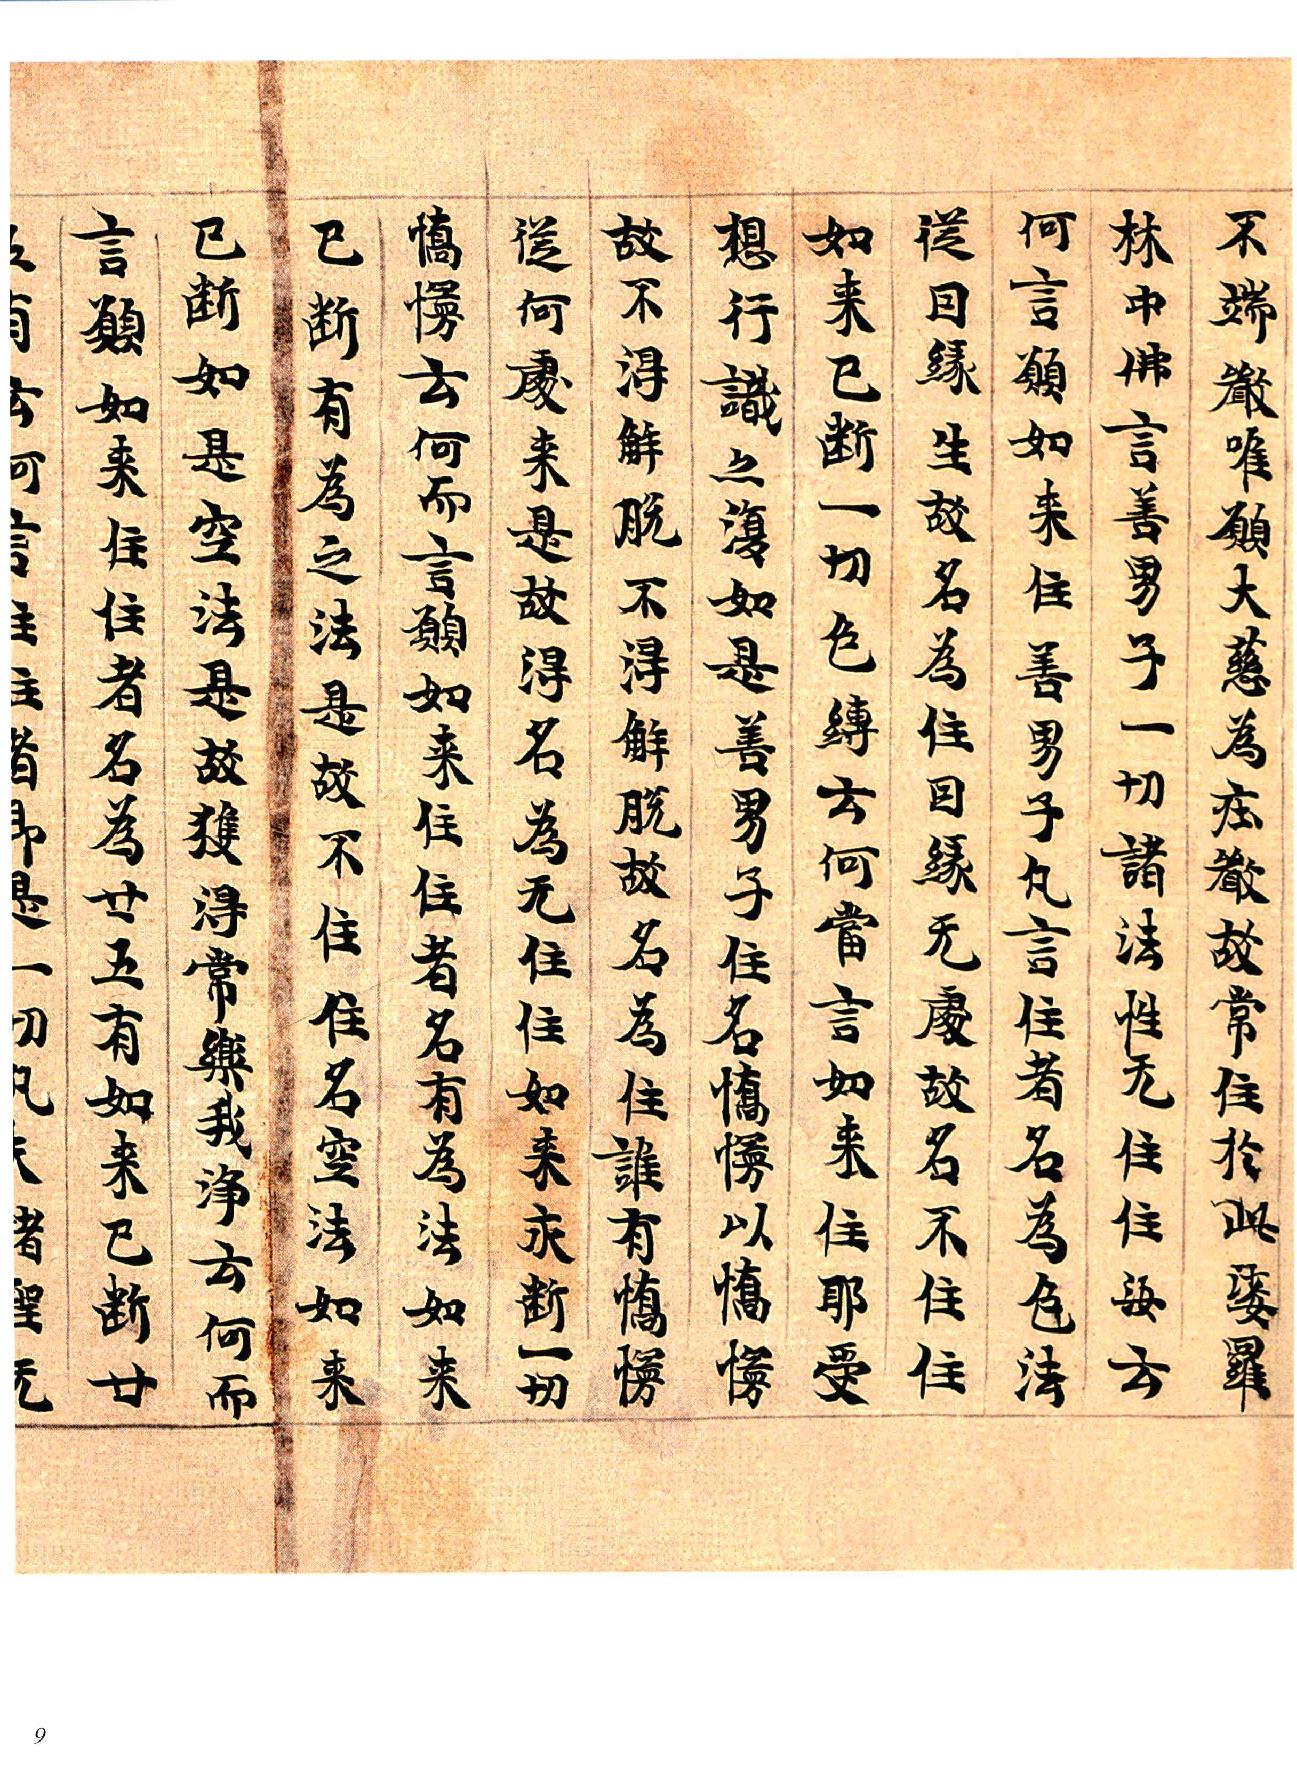 不端嚴唯願大慈為庄嚴故常住於此娑羅
林中佛言善男子一切諸法性无住住汝云
何言願如来住善男子凡言住者名為色法
従因縁生故名為住因縁无處故名不住住
如来已断一切色縛云何當言如来住耶受
想行識亦復如是善男子住名憍慢以憍慢
故不得解脱不得解脱故名為住誰有憍慢
従何處来是故得名為无住住如来永断一切
憍慢云何而言願如来住住者名有為法如来
已断有為之法是故不住住名空法如来
已断如是空法是故獲得常樂我浄云何而
言願如来住住者名為廿五有如来已断廿
五有云何言住住者即是一切凡夫諸聖无
9